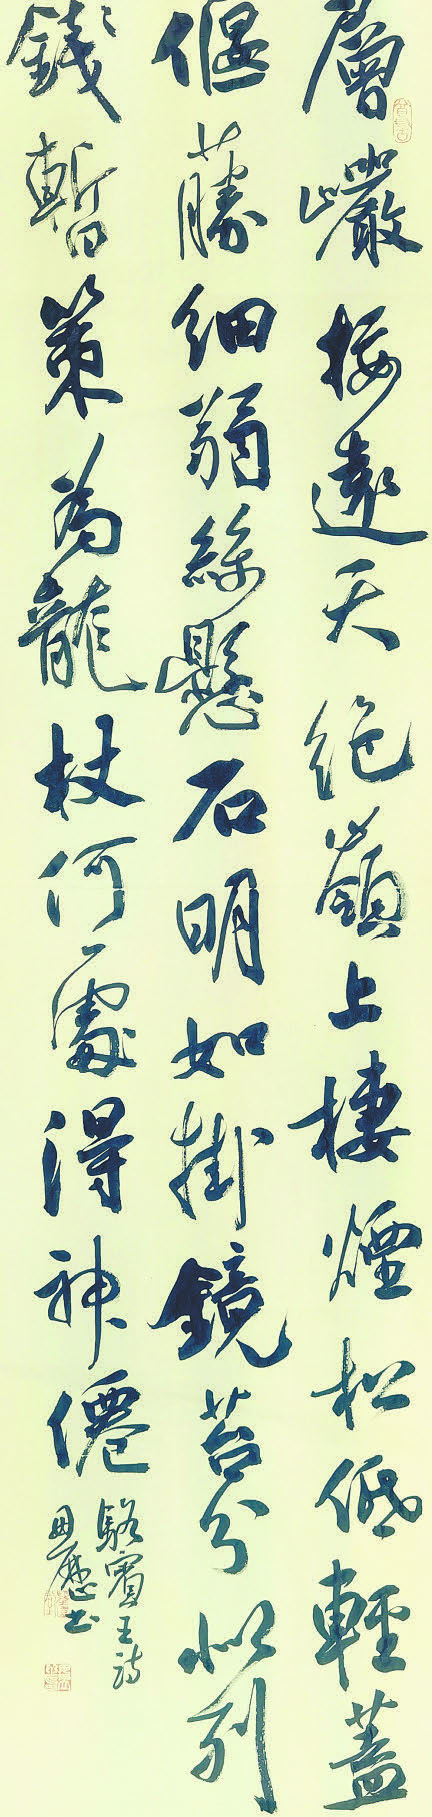 層巖接遠天絕嶺上棲煙松低輕蓋
偃藤細弱絲懸石明如掛鏡苔分似列
錢暫策為龍杖何處得神僊
駱賓王詩
書